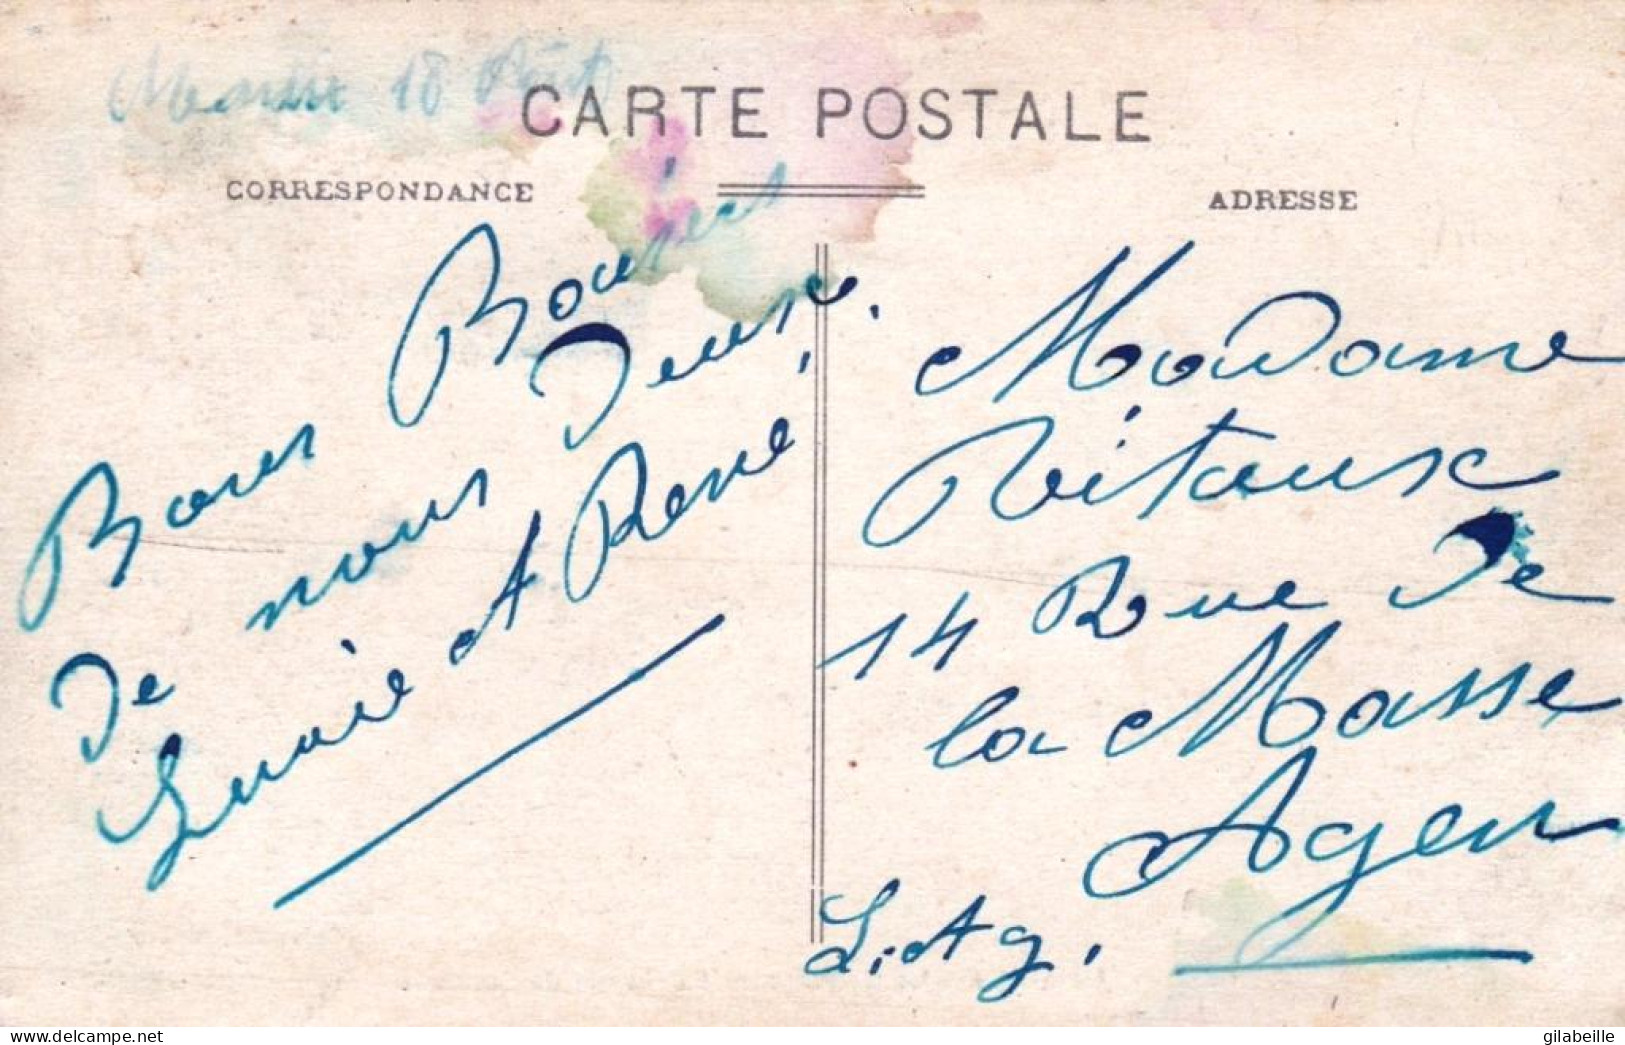 18 Août
CARTE POSTALE
CORRESPONDANCE
ADRESSE
Bones Baisers
de nous Deux.
et René
Madame
Ritaux
14 Rue De
la Masse
Agen
L. et G.
gilabeille